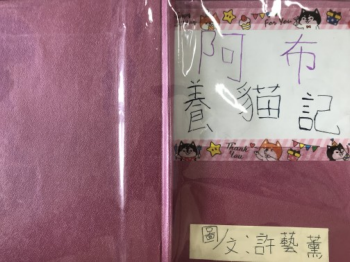 Thank You
阿布
養貓記
Thank You
圖/文:許藝薰